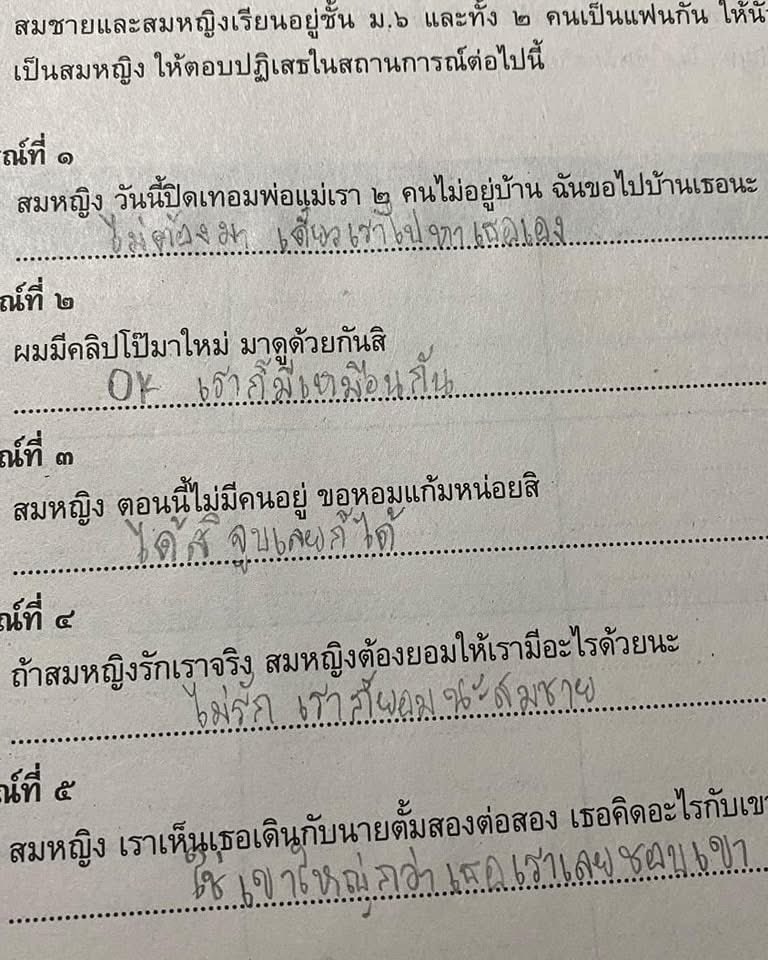 สมชายและสมหญิงเรียนอยู่ชั้น ม.๖ และทั้ง ๒ คนเป็นแฟนกัน ให้
เป็นสมหญิง ให้ตอบปฏิเสธในสถานการณ์ต่อไปนี้
ณ์ที่ ๑
สมหญิง วันนี้ปิดเทอมพ่อแม่เรา ๒ คนไม่อยู่บ้าน ฉันขอไปบ้านเธอนะ
ไม่ต้องมา เดี๋ยวเราไปหาเธอเอง
ณ์ที่ ๒
ผมมีคลิปโป๊มาใหม่ มาดูด้วยกันสิ
OK เราก็มีเหมือนกัน
ณ์ที่ ๓
สมหญิง ตอนนี้ไม่มีคนอยู่ ขอหอมแก้มหน่อยสิ
ได้สิ จูบเลยก็ได้
ณ์ที่ ๔
ถ้าสมหญิงรักเราจริง สมหญิงต้องยอมให้เรามีอะไรด้วยนะ
ไม่รัก เราก็ยอมนะสมชาย
ณ์ที่ ๕
สมหญิง เราเห็นเธอเดินกับนายตั้มสองต่อสอง เธอคิดอะไรกับเขา
ใช่ เขาใหญ่กว่าเธอเราเลยชอบเขา